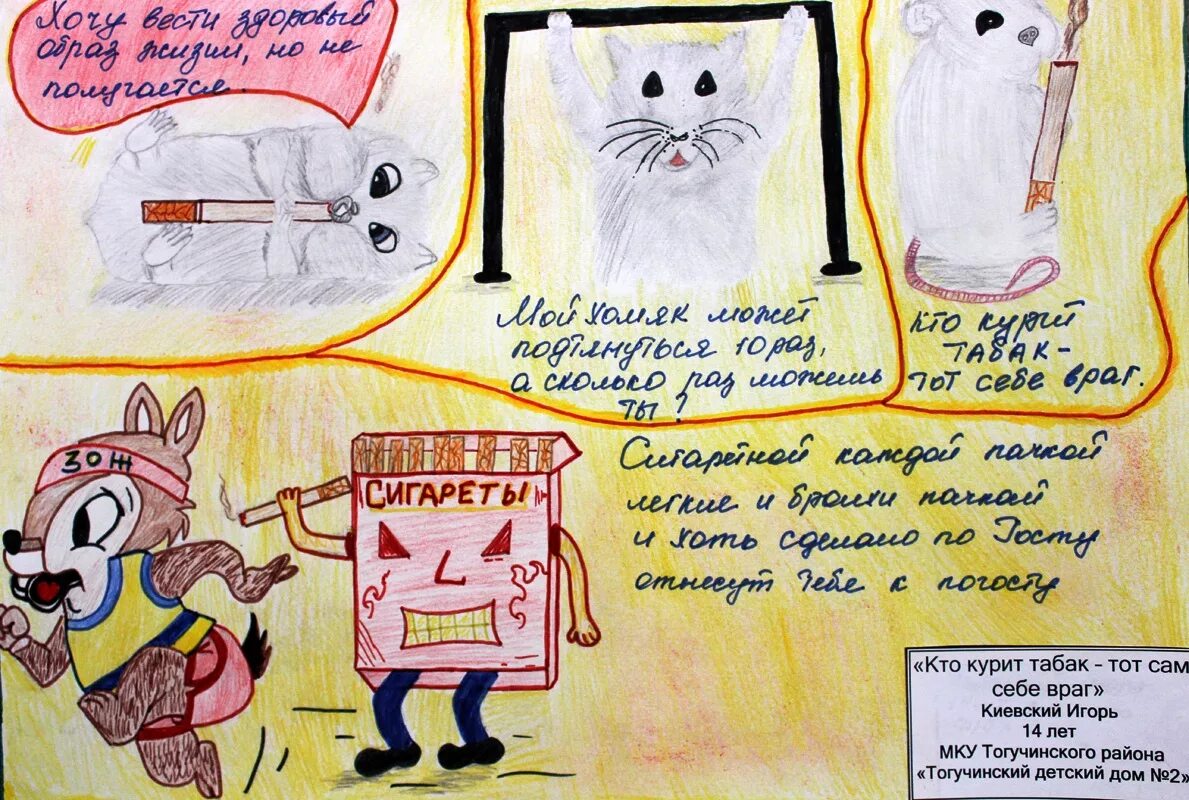 Хочу вести здоровый
образ жизни, но не
получается.
Мой хомяк может
подтянуться 10 раз,
а сколько раз можешь
ты?
Кто курит
ТАБАК -
тот себе враг.
ЗОЖ
СИГАРЕТЫ
Сигаретной каждой пачкой
легкие и бронхи пачкай
и хоть сделано по Госту
отнесут тебе к погосту
«Кто курит табак - тот сам
себе враг»
Киевский Игорь
14 лет
МКУ Тогучинского района
«Тогучинский детский дом №2»